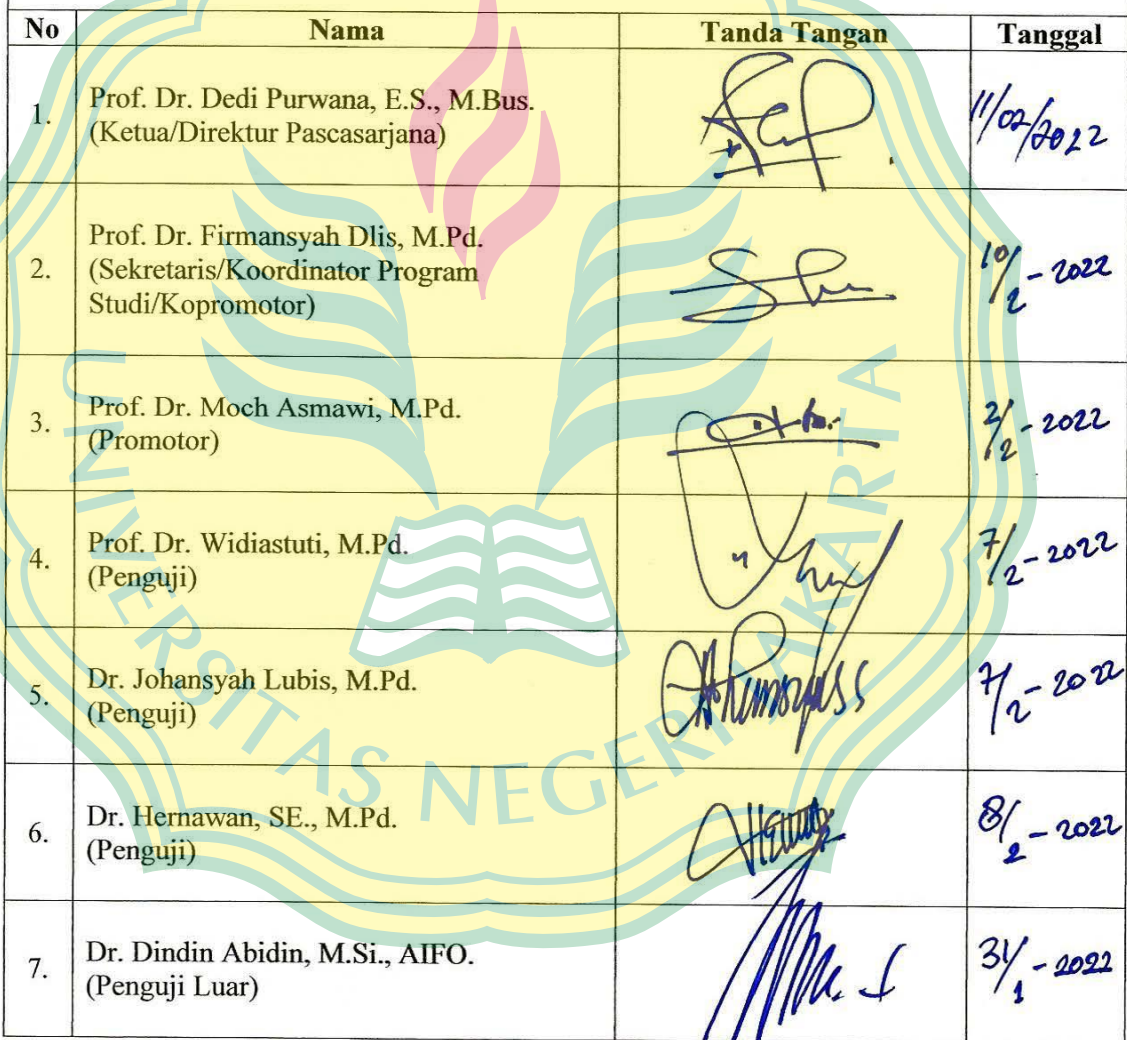 No Nama Tanda Tangan Tanggal
1. Prof. Dr. Dedi Purwana, E.S., M.Bus.
(Ketua/Direktur Pascasarjana)
11/02/2022
2. Prof. Dr. Firmansyah Dlis, M.Pd.
(Sekretaris/Koordinator Program
Studi/Kopromotor)
10/2 - 2022
3. Prof. Dr. Moch Asmawi, M.Pd.
(Promotor)
2/2 - 2022
4. Prof. Dr. Widiastuti, M.Pd.
(Penguji)
7/2 - 2022
5. Dr. Johansyah Lubis, M.Pd.
(Penguji)
7/2 - 2022
6. Dr. Hernawan, SE., M.Pd.
(Penguji)
8/2 - 2022
7. Dr. Dindin Abidin, M.Si., AIFO.
(Penguji Luar)
31/1 - 2022
UNIVERSITAS NEGERI JAKARTA